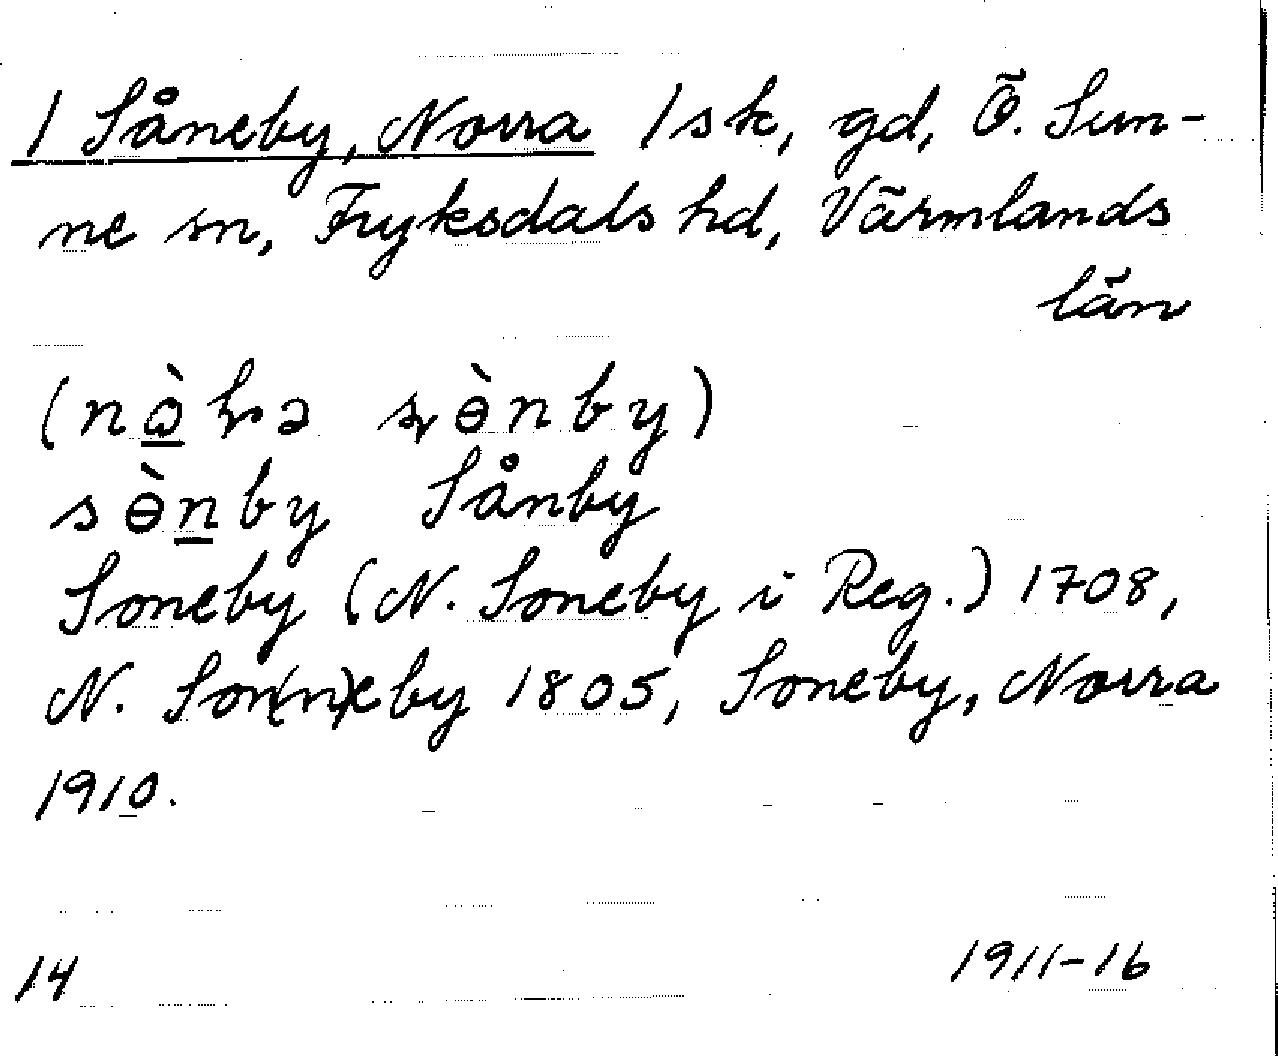 1 Såneby, Norra 1 sk, gd, Ö. Sun-
ne sn, Fryksdals hd, Värmlands
län
sɵ̀n̲by Sånby
Soneby (N. Soneby i Reg.) 1708,
N. Son(n)eby 1805, Soneby, Norra
1910.
14 1911-16